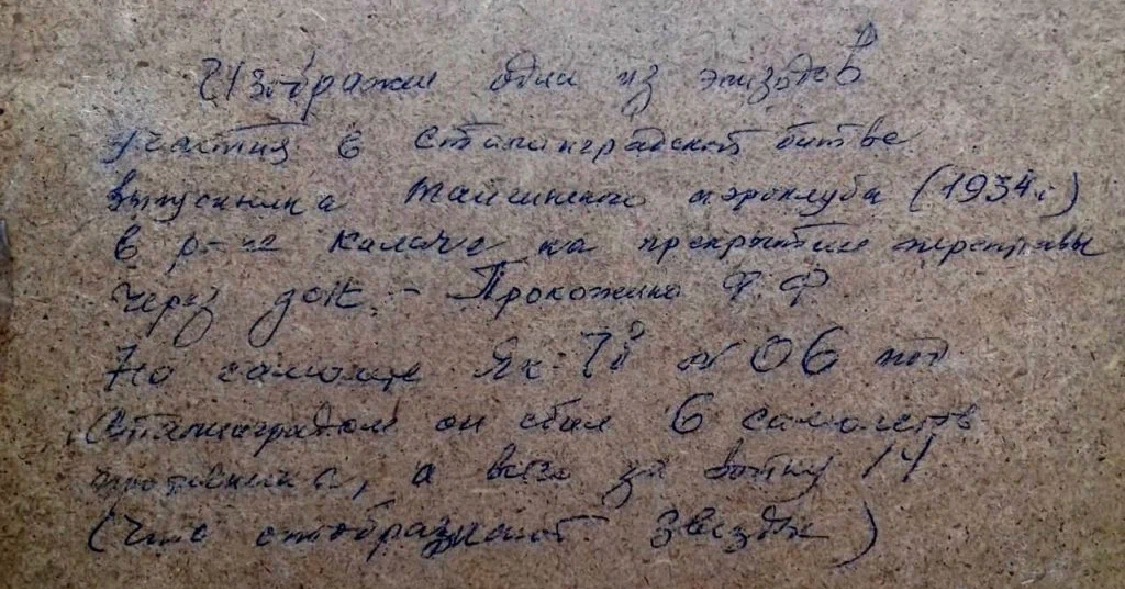 Изображен один из эпизодов
участия в Сталинградской битве
выпускника Тайгинского аэроклуба (1934г)
в р-не Калача на прикрытии переправы
через дон. - Прокожина Ф.Ф
На самолете Як-7б № 06 под
Сталинградом он сбил 6 самолетов
противника, а всего за войну 14
(что отображают звезды)